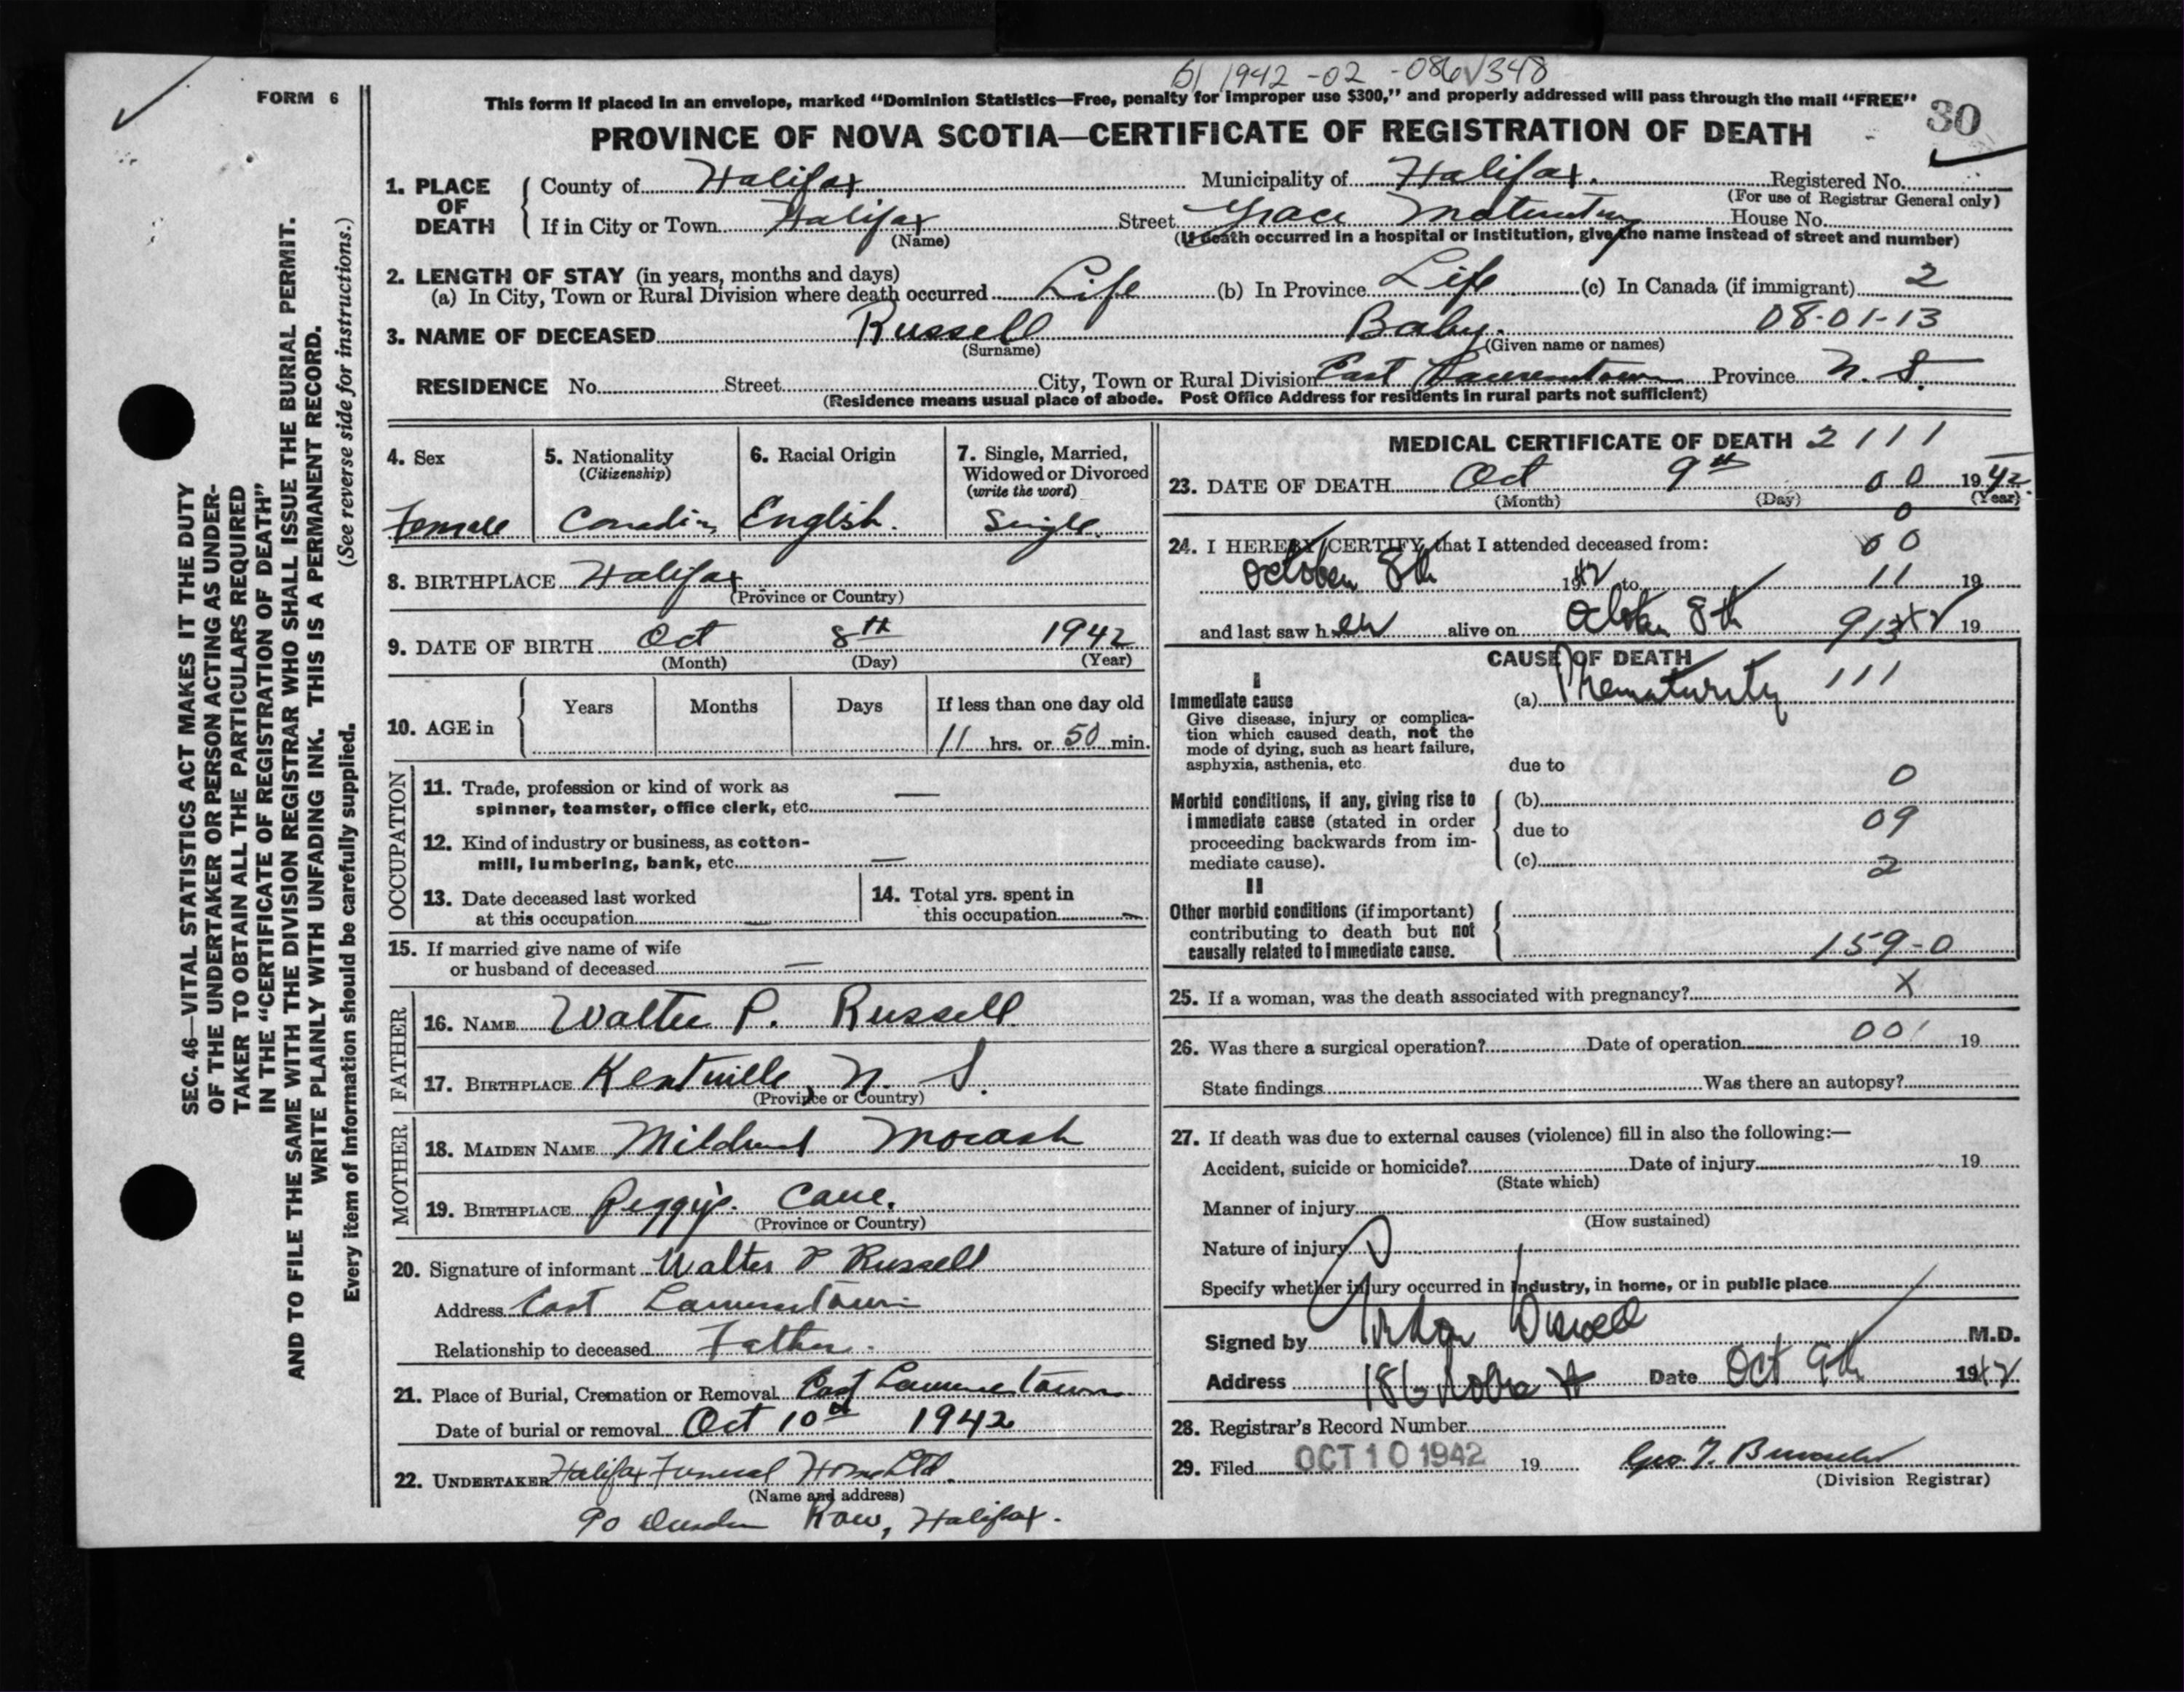 6) 1942 - 02 - 086348
FORM 6
This form if placed in an envelope, marked “Dominion Statistics—Free, penalty for improper use $300,” and properly addressed will pass through the mail “FREE”
30
PROVINCE OF NOVA SCOTIA—CERTIFICATE OF REGISTRATION OF DEATH
1. PLACE OF DEATH
County of Halifax Municipality of Halifax. Registered No.
(For use of Registrar General only)
If in City or Town Halifax Street Grace Maternity House No.
(Name) (If death occurred in a hospital or institution, give the name instead of street and number)
2. LENGTH OF STAY (in years, months and days)
(a) In City, Town or Rural Division where death occurred Life (b) In Province Life (c) In Canada (if immigrant) 2
08-01-13
3. NAME OF DECEASED Russell Baby.
(Surname) (Given name or names)
RESIDENCE No. Street City, Town or Rural Division East Lawrencetown Province N. S.
(Residence means usual place of abode. Post Office Address for residents in rural parts not sufficient)
SEC. 46—VITAL STATISTICS ACT MAKES IT THE DUTY
OF THE UNDERTAKER OR PERSON ACTING AS UNDER-
TAKER TO OBTAIN ALL THE PARTICULARS REQUIRED
IN THE “CERTIFICATE OF REGISTRATION OF DEATH”
AND TO FILE THE SAME WITH THE DIVISION REGISTRAR WHO SHALL ISSUE THE BURIAL PERMIT.
WRITE PLAINLY WITH UNFADING INK. THIS IS A PERMANENT RECORD.
Every item of information should be carefully supplied. (See reverse side for instructions.)
4. Sex
Female
5. Nationality
(Citizenship)
6. Racial Origin
English.
7. Single, Married,
Widowed or Divorced
(write the word)
Single.
8. BIRTHPLACE Halifax
(Province or Country)
9. DATE OF BIRTH Oct 8th 1942
(Month) (Day) (Year)
10. AGE in
Years Months Days If less than one day old
11 hrs. or 50 min.
OCCUPATION
11. Trade, profession or kind of work as
spinner, teamster, office clerk, etc. —
12. Kind of industry or business, as cotton-
mill, lumbering, bank, etc. —
13. Date deceased last worked
at this occupation —
14. Total yrs. spent in
this occupation —
15. If married give name of wife
or husband of deceased —
FATHER
16. NAME Walter P. Russell
17. BIRTHPLACE Kentville, N. S.
(Province or Country)
MOTHER
18. MAIDEN NAME Mildred Morash
19. BIRTHPLACE Peggy's Cove.
(Province or Country)
20. Signature of informant Walter P Russell
Address East Lawrencetown
Relationship to deceased Father.
21. Place of Burial, Cremation or Removal East Lawrencetown
Date of burial or removal Oct 10th 1942
22. UNDERTAKER Halifax Funeral Home Ltd.
(Name and address)
90 Row, Halifax.
MEDICAL CERTIFICATE OF DEATH 2111
23. DATE OF DEATH Oct 9th 00 1942
(Month) (Day) (Year)
0
24. I HEREBY CERTIFY that I attended deceased from: 00
October 8th 1942 to 11 19
and last saw her alive on October 8th 913 42 19
CAUSE OF DEATH
I
Immediate cause
Give disease, injury or complica-
tion which caused death, not the
mode of dying, such as heart failure,
asphyxia, asthenia, etc.
(a) Prematurity 111
due to
0
Morbid conditions, if any, giving rise to
immediate cause (stated in order
proceeding backwards from im-
mediate cause).
(b)
due to 09
(c) 2
II
Other morbid conditions (if important)
contributing to death but not
causally related to immediate cause.
159-0
25. If a woman, was the death associated with pregnancy? X
26. Was there a surgical operation? Date of operation 00 19
State findings Was there an autopsy?
27. If death was due to external causes (violence) fill in also the following:—
Accident, suicide or homicide? Date of injury 19
(State which)
Manner of injury
(How sustained)
Nature of injury
Specify whether injury occurred in industry, in home, or in public place
Signed by Gordon Wiswell M.D.
Address 186 Date Oct 9th 1942
28. Registrar's Record Number
29. Filed OCT 10 1942 19 Geo. T.
(Division Registrar)